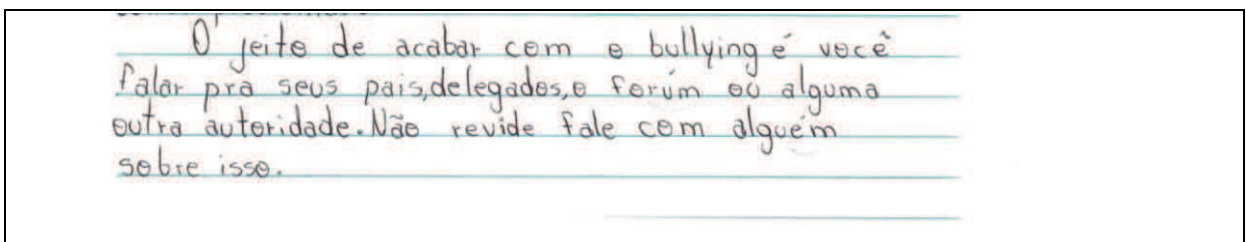 O jeito de acabar com o bullying é você
falar pra seus pais,delegados,o forúm ou alguma
outra autoridade.Não revide fale com alguém
sobre isso.